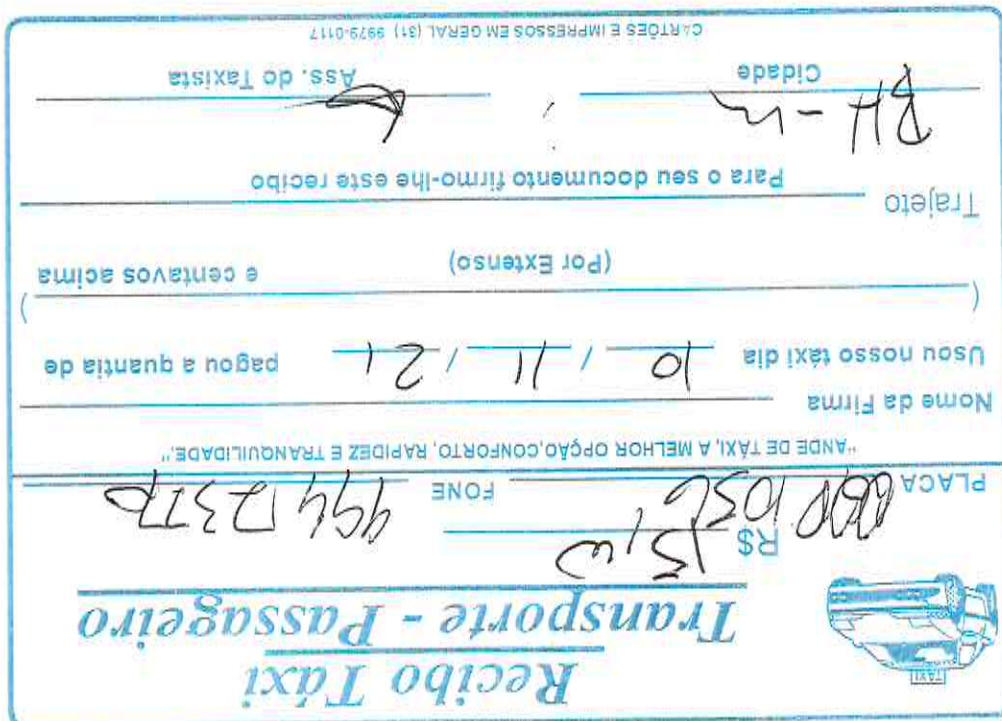 TÁXI
Recibo Táxi
Transporte - Passageiro
R$ 15,00
PLACA FONE
"ANDE DE TÁXI, A MELHOR OPÇÃO,CONFORTO, RAPIDEZ E TRANQUILIDADE."
Nome da Firma
Usou nosso táxi dia 10 / 11 / 21 pagou a quantia de
( )
(Por Extenso) e centavos acima
Trajeto
Para o seu documento firmo-lhe este recibo
BH - m
Cidade Ass. do Taxista
CARTÕES E IMPRESSOS EM GERAL (31) 9979-0117